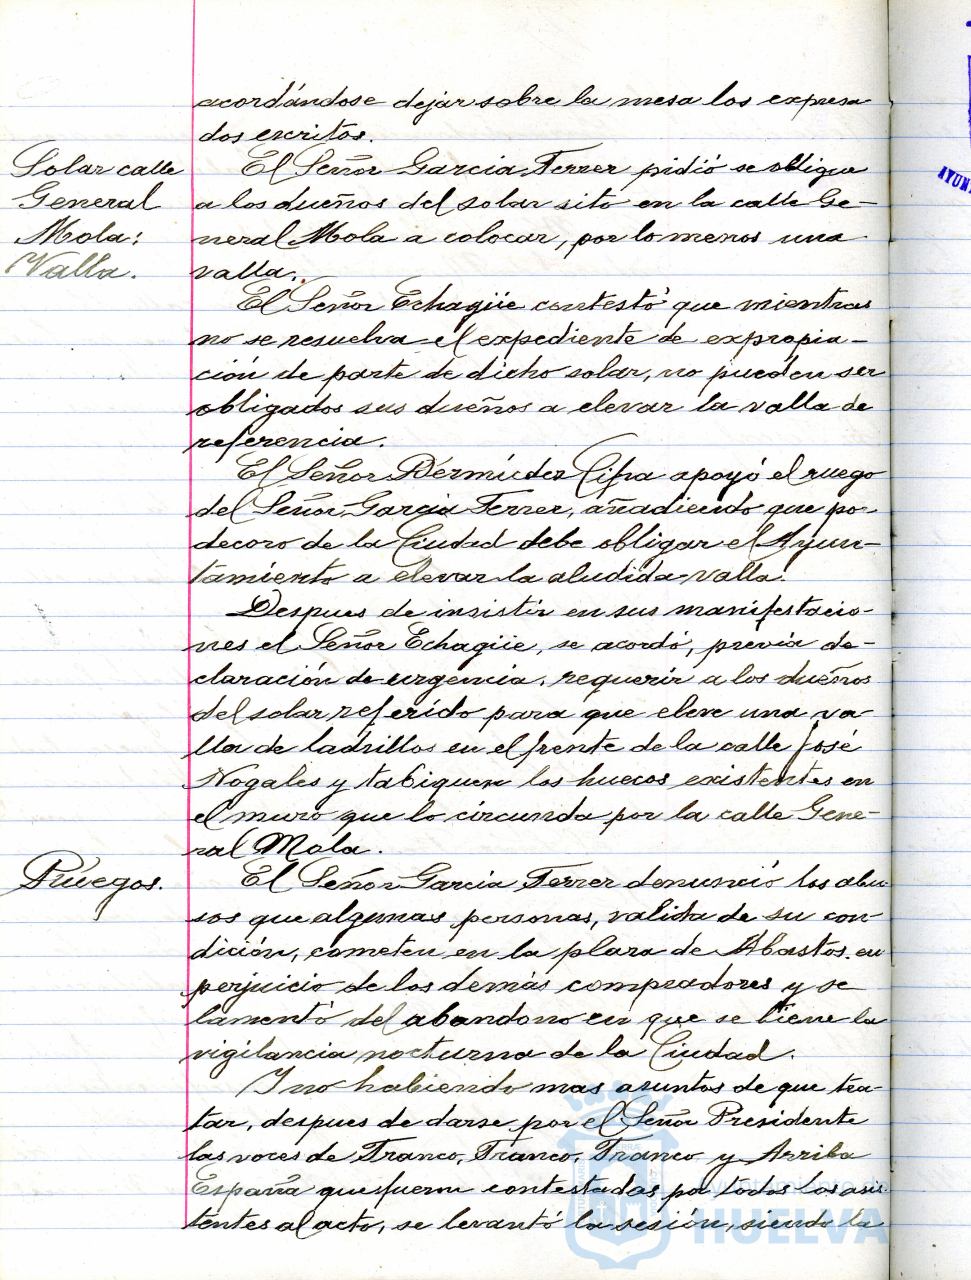 acordándose dejar sobre la mesa los expresa-
dos escritos.
Solar calle
General
Mola:
Valla.
El Señor Garcia Ferrer pidió se obligue
a los dueños del solar sito en la calle Ge-
neral Mola a colocar, por lo menos una
valla.
El Señor Echagüe contestó que mientras
no se resuelva el expediente de expropia-
ción de parte de dicho solar, no pueden ser
obligados sus dueños a elevar la valla de
referencia.
El Señor Bermúdez Cifra apoyó el ruego
del Señor Garcia Ferrer, añadiendo que por
decoro de la Ciudad debe obligar el Ayun-
tamiento a elevar la aludida valla.
Despues de insistir en sus manifestacio-
nes el Señor Echagüe, se acordó, previa de-
claración de urgencia, requerir a los dueños
del solar referido para que eleve una va-
lla de ladrillos en el frente de la calle José
Nogales y tabiquen los huecos existentes en
el muro que lo circunda por la calle Gene-
ral Mola.
Ruegos.
El Señor Garcia Ferrer denunció los abu-
sos que algunas personas, valida de su con-
dición, cometen en la plaza de Abastos en
perjuicio de los demás compradores y se
lamentó del abandono en que se tiene la
vigilancia nocturna de la Ciudad.
Y no habiendo mas asuntos de que tra-
tar, despues de darse por el Señor Presidente
las voces de Franco, Franco, Franco y Arriba
España que fueron contestadas por todos los asis-
tentes al acto, se levantó la sesión, siendo la
Ayuntamiento de
HUELVA
AYUN